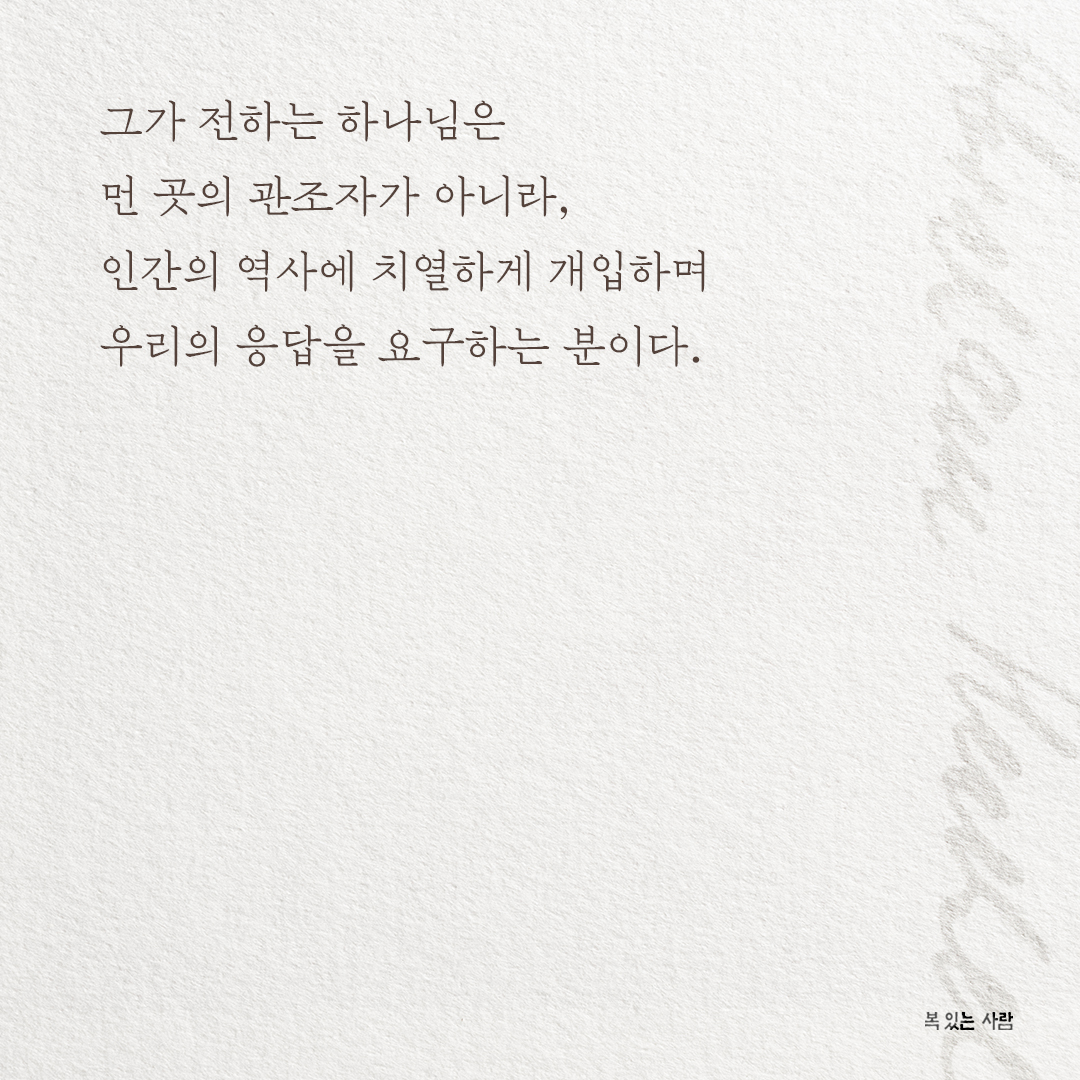 그가 전하는 하나님은
먼 곳의 관조자가 아니라,
인간의 역사에 치열하게 개입하며
우리의 응답을 요구하는 분이다.
복 있는 사람